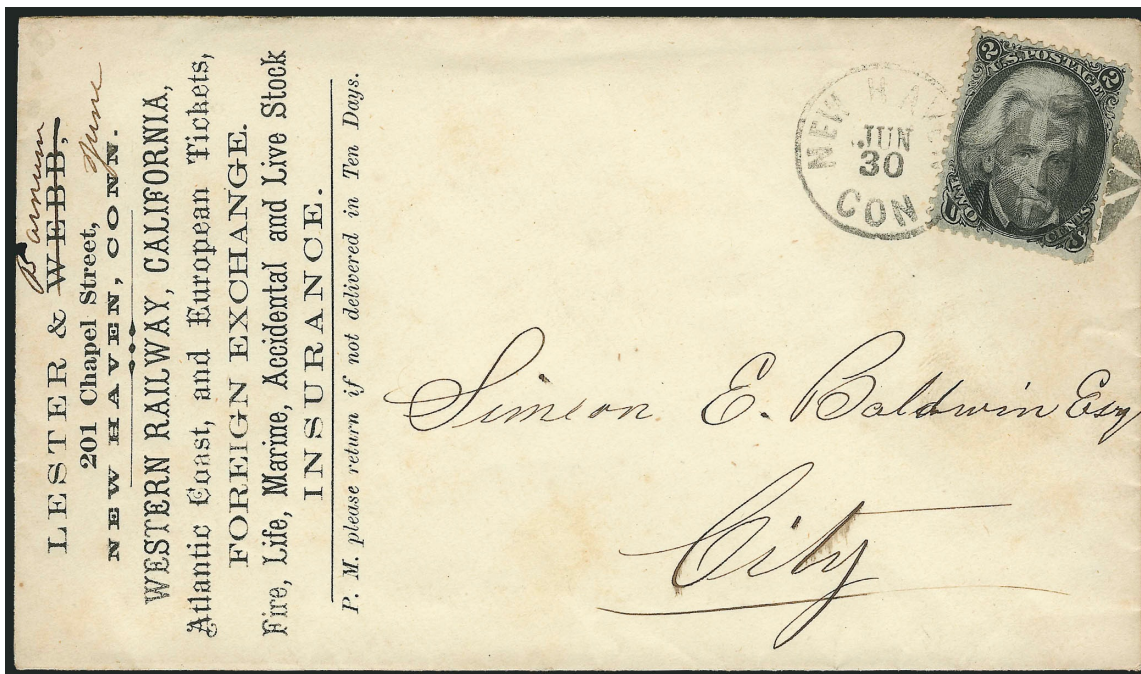 Barnum
LESTER & WEBB,
201 Chapel Street,
NEW HAVEN, CONN.
WESTERN RAILWAY, CALIFORNIA,
Atlantic Coast, and European Tickets,
FOREIGN EXCHANGE.
Fire, Life, Marine, Accidental and Live Stock
INSURANCE.
P. M. please return if not delivered in Ten Days.
NEW HAVEN
JUN
30
CON
2 U.S. POSTAGE 2
TWO CENTS
Simeon E. Baldwin Esq
City